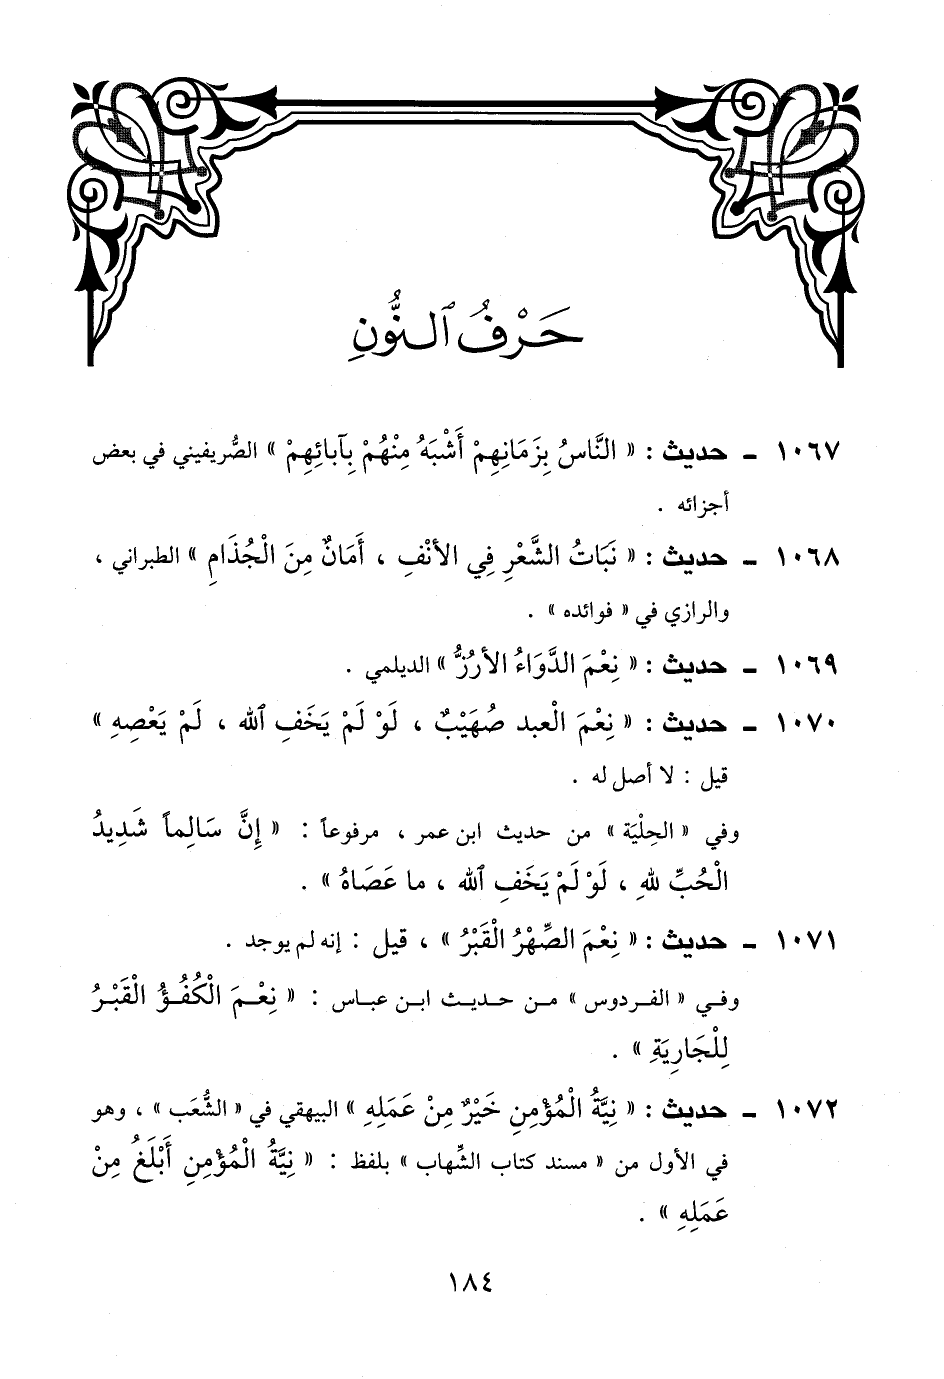 حَرْفُ ٱلنُّونِ
١٠٦٧ ـ حديث : « النَّاسُ بِزَمَانِهِمْ أَشْبَهُ مِنْهُمْ بِآبائِهِمْ » الصَّريفيني في بعض
أجزائه .
١٠٦٨ ـ حديث : « نَبَاتُ الشَّعْرِ فِي الأنْفِ ، أَمَانٌ مِنَ الْجُذَامِ » الطبراني ،
والرازي في « فوائده » .
١٠٦٩ ـ حديث : « نِعْمَ الدَّوَاءُ الأرُزُّ » الديلمي .
١٠٧٠ ـ حديث : « نِعْمَ الْعبد صُهَيْبٌ ، لَوْ لَمْ يَخَفِ ٱلله ، لَمْ يَعْصِهِ »
قيل : لا أصل له .
وفي « الحِلْيَة » من حديث ابن عمر ، مرفوعاً : « إِنَّ سَالِماً شَدِيدُ
الْحُبِّ للهِ ، لَوْ لَمْ يَخَفِ ٱلله ، ما عَصَاهُ » .
١٠٧١ ـ حديث : « نِعْمَ الصِّهْرُ الْقَبْرُ » ، قيل : إنه لم يوجد .
وفي « الفردوس » من حديث ابن عباس : « نِعْمَ الْكُفُؤُ الْقَبْرُ
لِلْجَارِيَةِ » .
١٠٧٢ ـ حديث : « نِيَّةُ الْمُؤْمِنِ خَيْرٌ مِنْ عَمَلِهِ » البيهقي في « الشُّعَب » ، وهو
في الأول من « مسند كتاب الشِّهاب » بلفظ : « نِيَّةُ الْمُؤْمِنِ أَبْلَغُ مِنْ
عَمَلِهِ » .
١٨٤